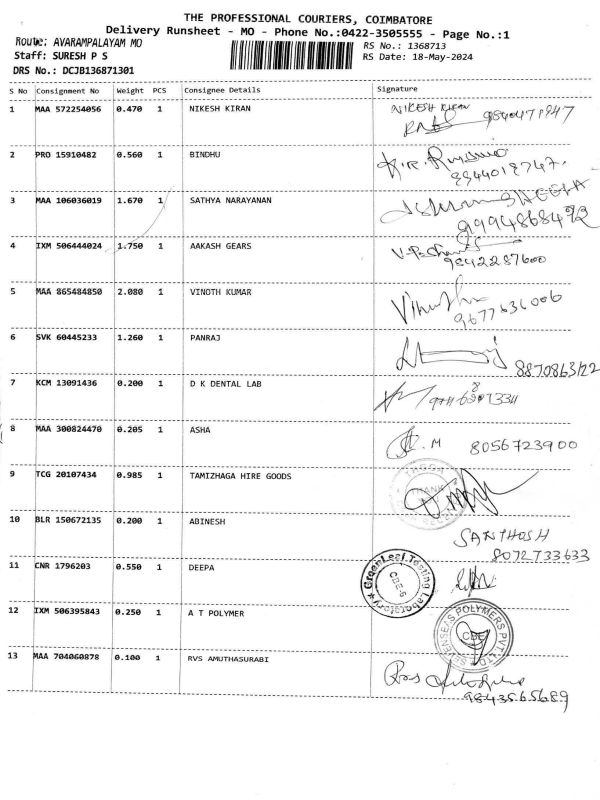 THE PROFESSIONAL COURIERS, COIMBATORE
Delivery Runsheet - MO - Phone No.:0422-3505555 - Page No.:1
Route: AVARAMPALAYAM MO
Staff: SURESH P S
DRS No.: DCJB136871301
RS No.: 1368713
RS Date: 18-May-2024
S No Consignment No Weight PCS Consignee Details Signature
1 MAA 572254056 0.470 1 NIKESH KIRAN NIKESH KIRAN
9840471947
2 PRO 15910482 0.560 1 BINDHU
9944018747.
3 MAA 106036019 1.670 1 SATHYA NARAYANAN
9994868492
4 IXM 506444024 1.750 1 AAKASH GEARS
9842287600
5 MAA 865484850 2.080 1 VINOTH KUMAR
9677636006
6 SVK 60445233 1.260 1 PANRAJ
8870863122
7 KCM 13091436 0.200 1 D K DENTAL LAB
8 MAA 300824470 0.205 1 ASHA M 8056723900
9 TCG 20107434 0.985 1 TAMIZHAGA HIRE GOODS
10 BLR 150672135 0.200 1 ABINESH SANTHOSH
8072733633
11 CNR 1796203 0.550 1 DEEPA
GreenLeaf Testing Laboratory
CBE-6
12 IXM 506395843 0.250 1 A T POLYMER
SEVENSEAS POLYMERS PVT. LTD
CBE
13 MAA 704060878 0.100 1 RVS AMUTHASURABI
9843565689